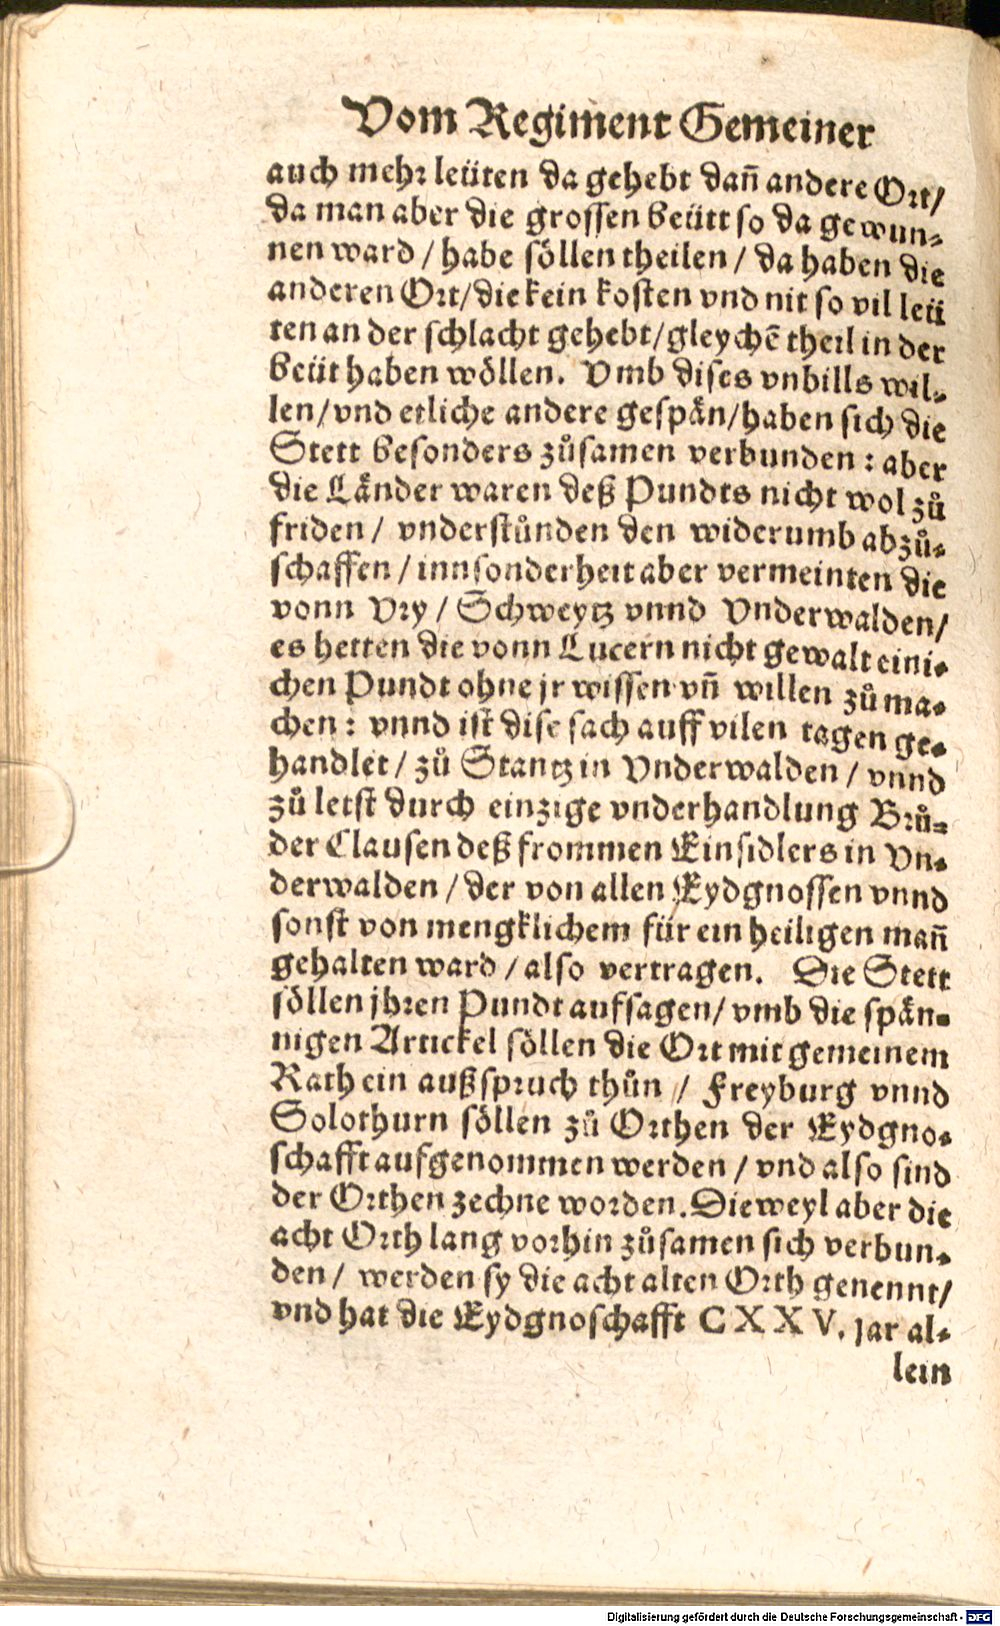 Vom Regiment Gemeiner
auch mehr leüten da gehebt dañ andere Ort/
da man aber die grossen beütt so da gewun⸗
nen ward / habe söllen theilen / da haben die
anderen Ort/die kein kosten vnd nit so vil leü
ten an der schlacht gehebt/gleychẽ theil in der
beüt haben wöllen. Vmb dises vnbills wil⸗
len/vnd etliche andere gespän/haben sich die
Stett besonders zůsamen verbunden: aber
die Länder waren deß Pundts nicht wol zů
friden / vnderstůnden den widerumb abzů⸗
schaffen / innsonderheit aber vermeinten die
vonn Vry / Schweytz vnnd Vnderwalden/
es hetten die vonn Lucern nicht gewalt eini⸗
chen Pundt ohne jr wissen vñ willen zů ma⸗
chen: vnnd ist dise sach auff vilen tagen ge⸗
handlet / zů Stantz in Vnderwalden / vnnd
zů letst durch einzige vnderhandlung Brů⸗
der Clausen deß frommen Einsidlers in Vn⸗
derwalden / der von allen Eydgnossen vnnd
sonst von mengklichem für ein heiligen mañ
gehalten ward / also vertragen. Die Stett
söllen jhren Pundt aufsagen/ vmb die spän⸗
nigen Artickel söllen die Ort mit gemeinem
Rath ein außspruch thůn / Freyburg vnnd
Solothurn söllen zů Orthen der Eydgno⸗
schafft aufgenommen werden / vnd also sind
der Orthen zechne worden. Dieweyl aber die
acht Orth lang vorhin zůsamen sich verbun⸗
den / werden sy die acht alten Orth genennt/
vnd hat die Eydgnoschafft CXXV. jar al⸗
lein
Digitalisierung gefördert durch die Deutsche Forschungsgemeinschaft - DFG